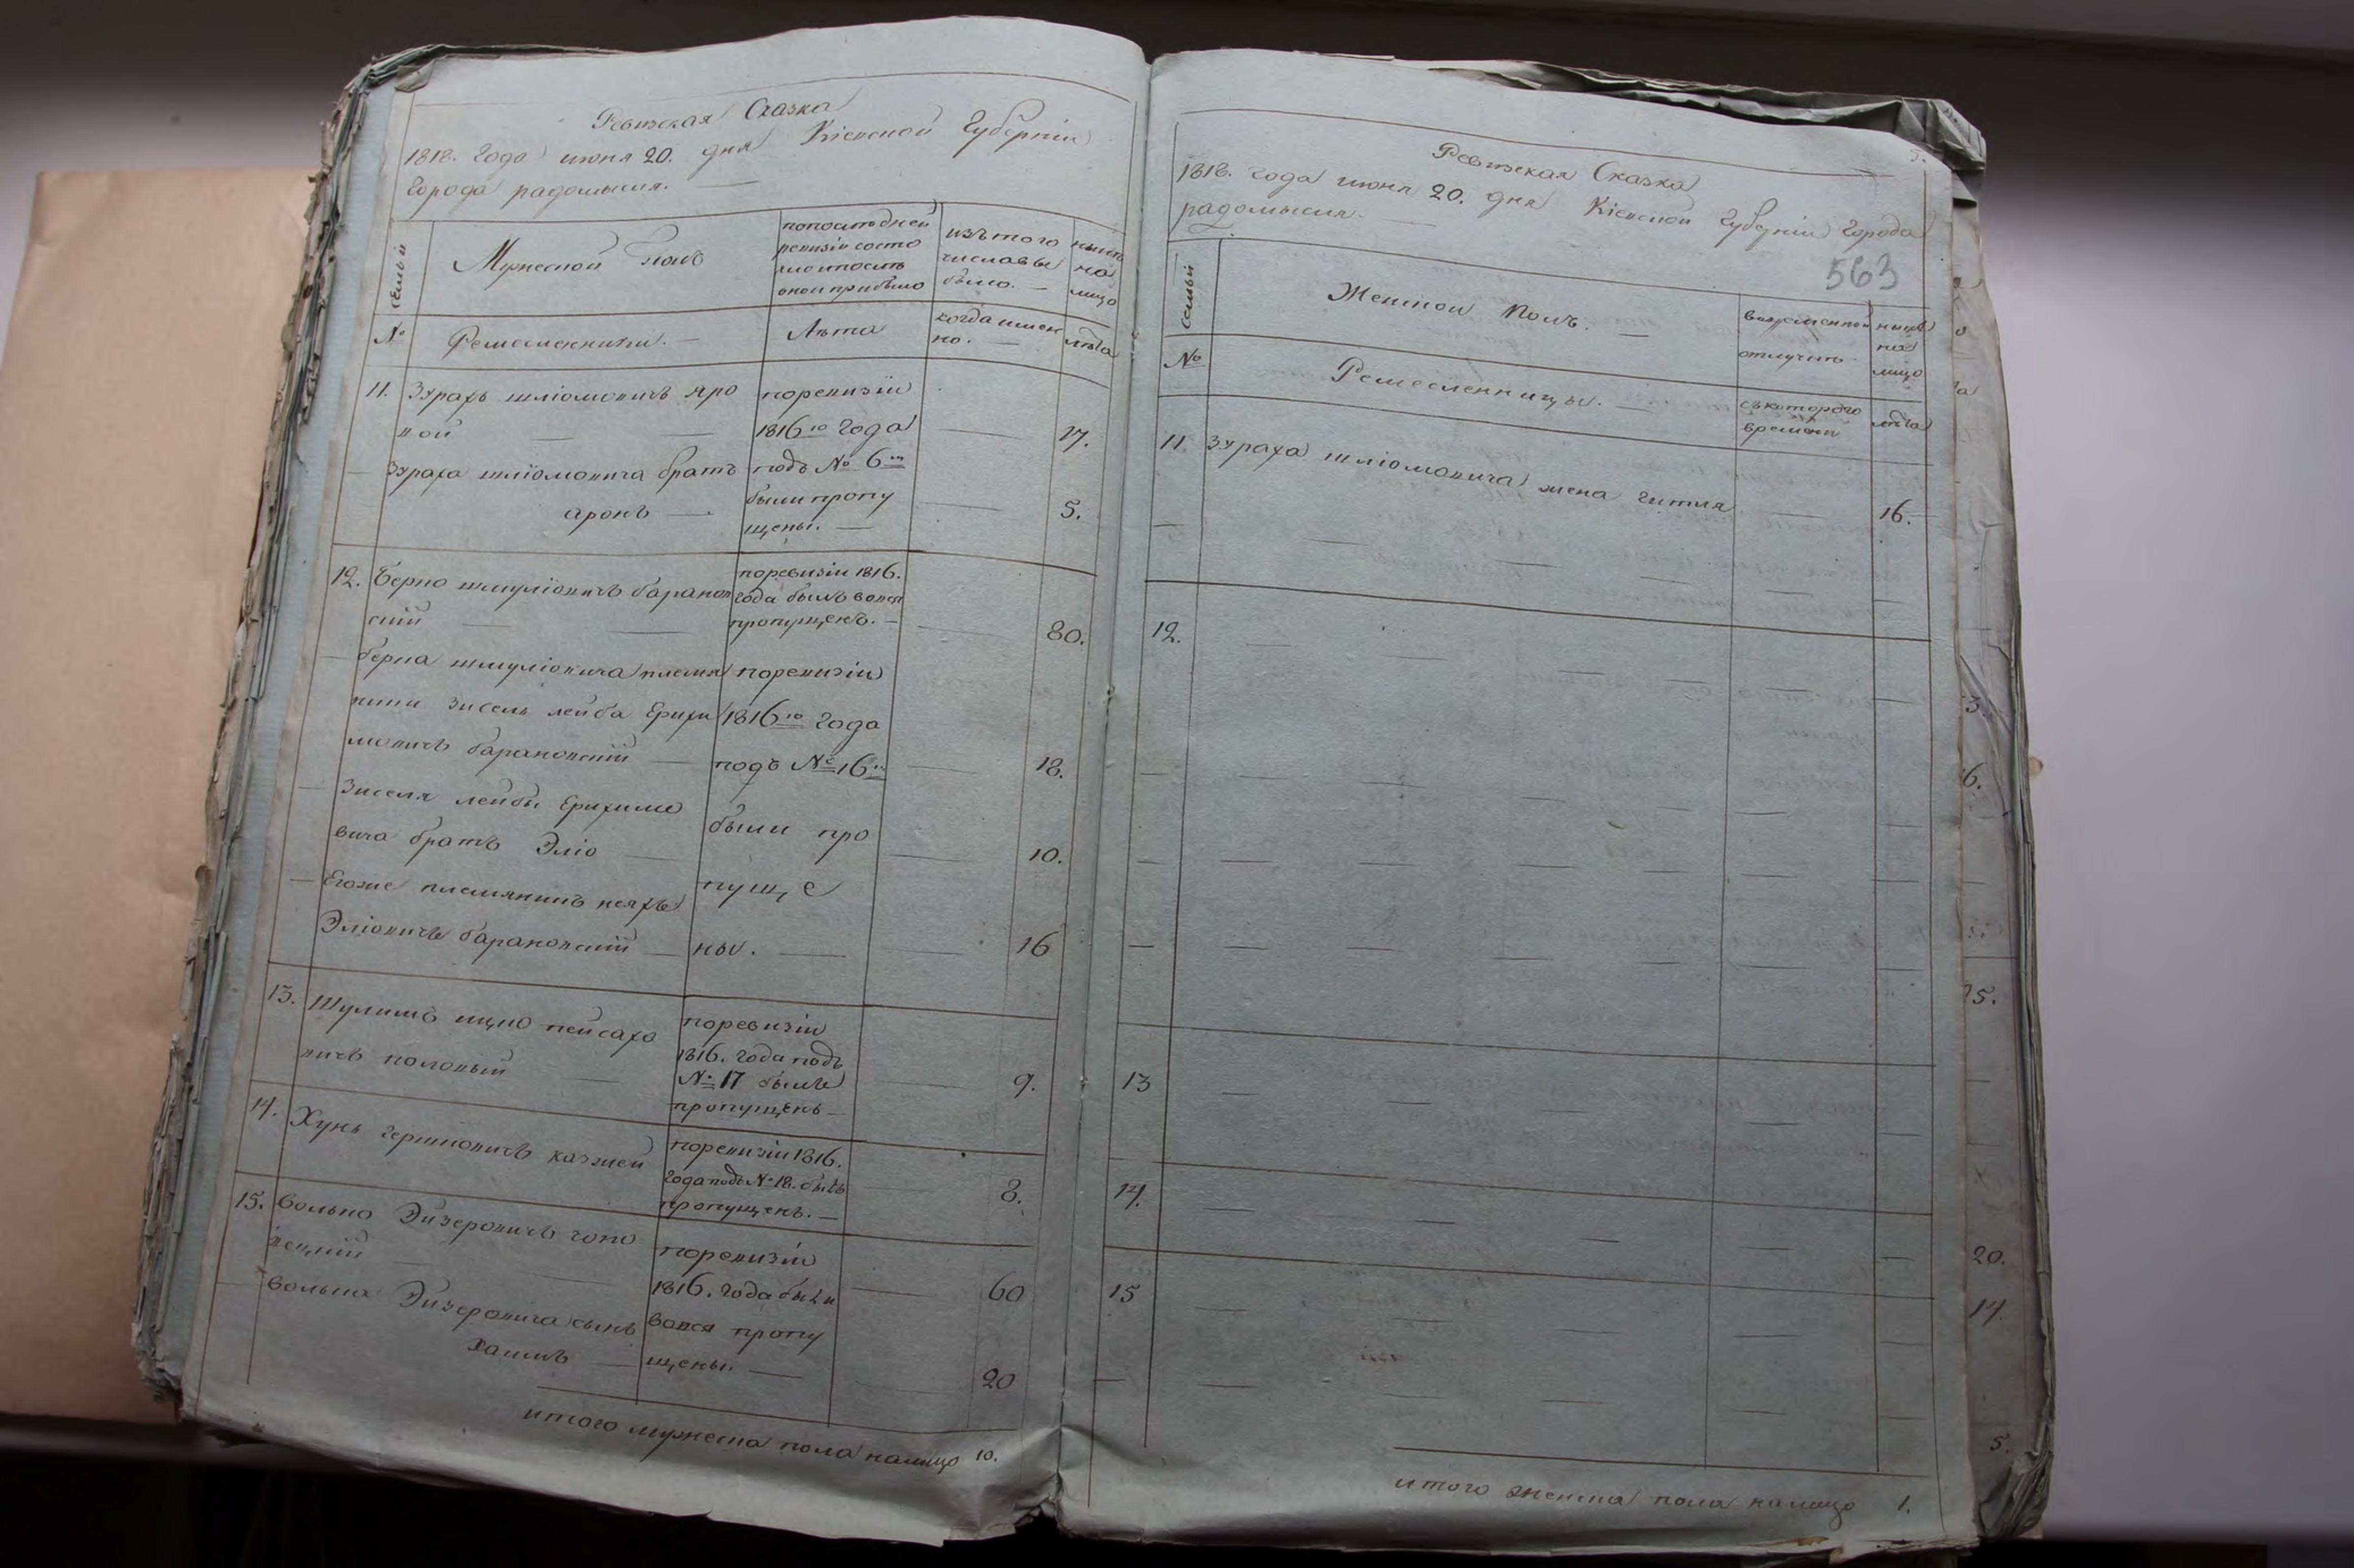 Ревизская Сказка
1818. года июня 20. дня Кіевской Губерніи
Города радомысля. —
семьи
Мужеской полъ
попоследней
ревизіи состо
яло ипосле
оной прибыло
изътого
числавы
было. —
ныне
на
лицо
№
Ремесленники. —
Лѣта
когдаимен
но. —
лѣта
11. Зурахъ шліомовичъ яро
вой — —
поревизіи
1816го года
— 17.
— Зураха шліомовича братъ
аронъ —
подъ № 6м
были пропу
щены. —
— 5.
12. Берко шмуліовичъ баранов
скій — —
поревизіи 1816.
года былъ вовся
пропущенъ. —
— 80.
— берка шмуліовича племя
ники зисель лейба Ерухи
мовичъ барановскій —
поревизіи
1816го года
подъ № 16м
— 18.
— Зиселя лейбы Ерухимо
вича братъ Эліо —
были про
— 10.
— Егоже племянникъ
Эліовичъ барановскій —
пуще
ны. —
— 16
13. Шулимъ ицко пейсахо
вичъ половый —
поревизіи
1816. года подъ
№ 17 былъ
пропущенъ —
— 9.
14. Хунъ гершковичъ
поревизіи 1816.
года подъ № 18. былъ
пропущенъ. —
— 8.
15. Волько Эйзеровичъ
—
поревизіи
1816. года были
— 60
— Волька Эйзеровича сынъ
Хаимъ —
вовся пропу
щены. —
20
итого мужеска пола налицо 10.
Ревизская Сказка
1818. года июня 20. дня Кіевской Губерніи Города
радомысля. —
563
семьи
Женской полъ. —
вовременной
отлучке
ныне
на
лицо
№
Ремесленницы. —
съкоторого
времени
лѣта
11 Зураха шліомовича жена гитля — 16.
12.
13
14.
15
итого женска пола налицо 1.